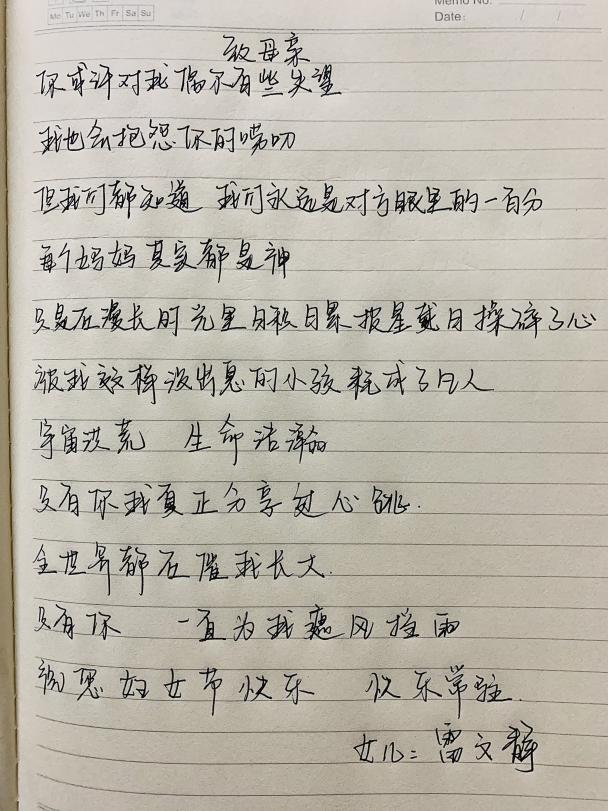 Mo Tu We Th Fr Sa Su
Memo No.
Date: / /
致母亲
你或许对我偶尔有些失望
我也会抱怨你的唠叨
但我们都知道 我们永远是对方眼里的一百分
每个妈妈其实都是神
只是在漫长时光里日积月累披星戴月操碎了心
被我这样没出息的小孩耗成了凡人
宇宙洪荒 生命浩瀚
只有你我真正分享过心跳.
全世界都在催我长大.
只有你 一直为我遮风挡雨
祝您妇女节快乐 快乐常驻.
女儿:雷文静